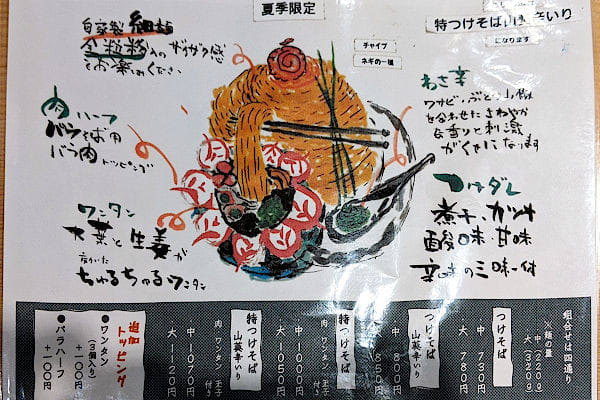 夏季限定
チャイブ
ネギの一種
になります
自家製 細麺
全粒粉入のザラザラ感
をお楽しみください
肉 ハーフ
バラ肉
トッピング
ワンタン
大葉と生姜が
ちゅるちゅるワンタン
わさ辛
を合わせたさわやか
な香りと刺激
がくせになります
つけダレ
煮干、カツオ
酸味、甘味
辛味の三味一付
組合せは四通り
※麺の量
中(220g)
大(320g)
つけそば
・中 730円
・大 780円
つけそば
山葵辛いり
800円
850円
特つけそば
肉 ワンタン 玉子付き
・中 1000円
・大 1050円
特つけそば
山葵辛いり
肉 ワンタン 玉子付き
・中 1070円
・大 1120円
追加トッピング
●ワンタン
(3個入り)
+100円
●バラハーフ
+100円